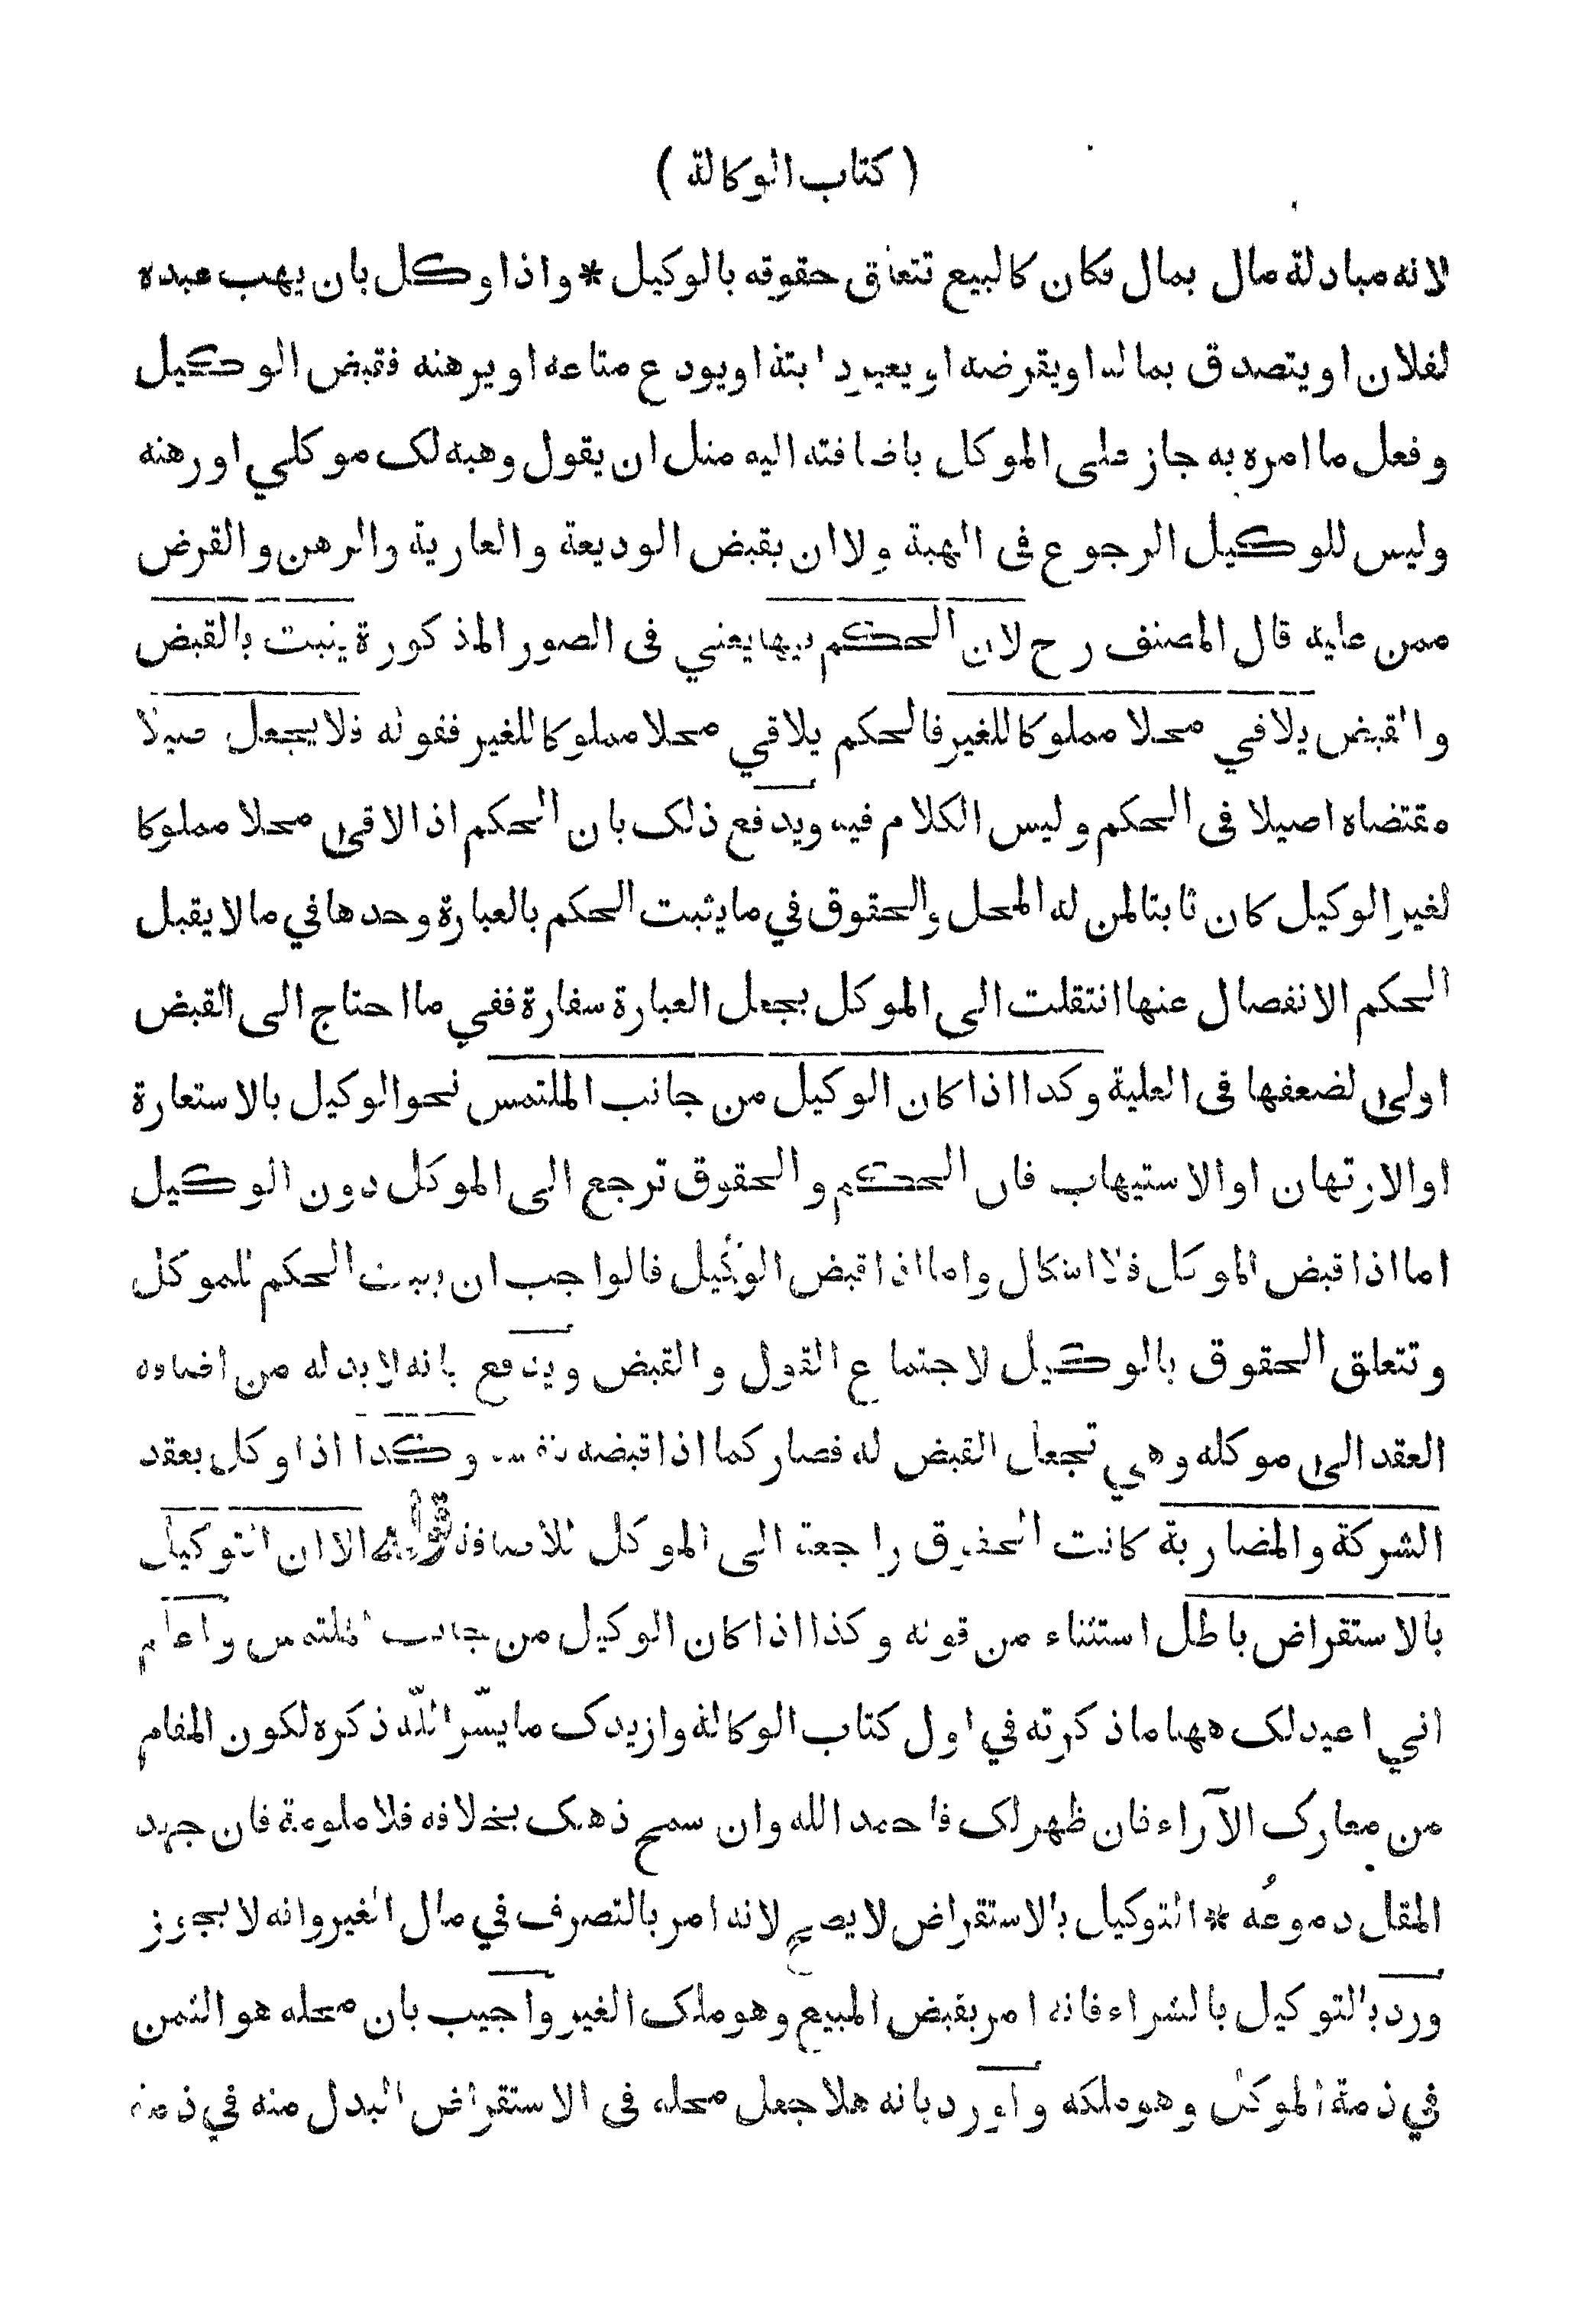 ( كتاب الوكالة )
لانه مبادلة مال بمال فكان كالبيع تتعلق حقوقه بالوكيل * واذا وكل بان يهب عبده
لفلان او يتصدق بماله او يقرضه او يعير دابته او يودع متاعه او يرهنه فقبض الوكيل
وفعل ما امره به جاز على الموكل باضافته اليه مثل ان يقول وهبه لك موكلي او رهنه
وليس للوكيل الرجوع فى الهبة ولا ان يقبض الوديعة والعارية والرهن والقرض
ممن عليه قال المصنف رح لان الحكم فيها يعني فى الصور المذكورة يثبت بالقبض
والقبض يلاقي محلا مملوكا للغير فالحكم يلاقي محلا مملوكا للغير فقوله فلا يجعل اصيلا
مقتضاه اصيلا فى الحكم وليس الكلام فيه ويدفع ذلك بان الحكم اذا لاقى محلا مملوكا
لغير الوكيل كان ثابتا لمن له المحل والحقوق في ما يثبت الحكم بالعبارة وحدها في ما لا يقبل
الحكم الانفصال عنها انتقلت الى الموكل بجعل العبارة سفارة ففي ما احتاج الى القبض
اولى لضعفها فى العلية وكذا اذا كان الوكيل من جانب الملتمس نحو الوكيل بالاستعارة
او الارتهان او الاستيهاب فان الحكم والحقوق ترجع الى الموكل دون الوكيل
اما اذا قبض الموكل فلا اشكال واما اذا قبض الوكيل فالواجب ان يثبت الحكم للموكل
وتتعلق الحقوق بالوكيل لاجتماع القول والقبض ويدفع بانه لا بد له من اضافه
العقد الى موكله وهي تجعل القبض له فصار كما اذا قبضه بنفسه وكذا اذا وكل بعقد
الشركة والمضاربة كانت الحقوق راجعة الى الموكل للاضافة قوله الا ان التوكيل
بالاستقراض باطل استثناء من قوله وكذا اذا كان الوكيل من جانب الملتمس واعلم
اني اعيد لك ههنا ما ذكرته في اول كتاب الوكالة وازيدك ما يسّر اللّه ذكره لكون المقام
من معارك الآراء فان ظهر لك فاحمد الله وان سمح ذهنك بخلافه فلا ملومة فان جهد
المقل دموعُه * التوكيل بالاستقراض لا يصح لانه امر بالتصرف في مال الغير وانه لا يجوز
ورد بالتوكيل بالشراء فانه امر بقبض المبيع وهو ملك الغير واجيب بان محله هو الثمن
في ذمة الموكل وهو ملكه واورد بانه هلا جعل محله فى الاستقراض البدل منه في ذمة